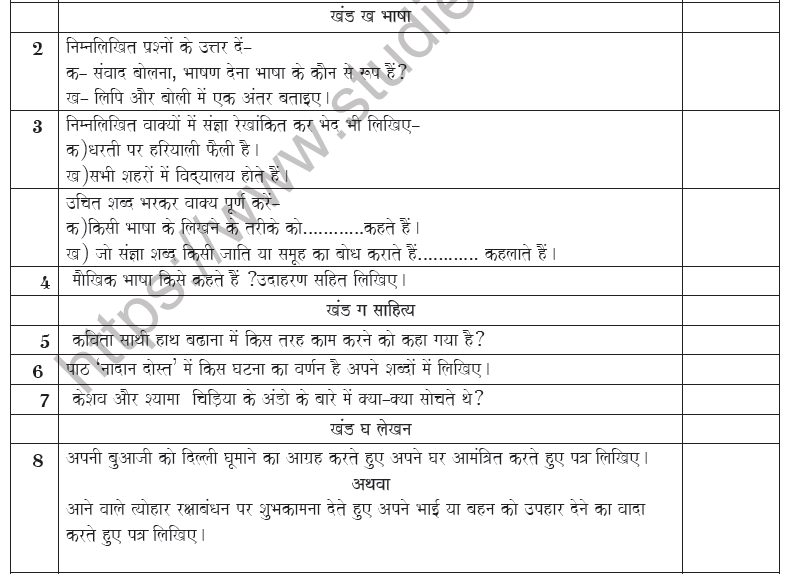 खंड ख भाषा
2 निम्नलिखित प्रश्नों के उत्तर दें–
क– संवाद बोलना, भाषण देना भाषा के कौन से रूप हैं?
ख– लिपि और बोली में एक अंतर बताइए।
3 निम्नलिखित वाक्यों में संज्ञा रेखांकित कर भेद भी लिखिए–
क)धरती पर हरियाली फैली है।
ख)सभी शहरों में विद्यालय होते हैं।
उचित शब्द भरकर वाक्य पूर्ण करें–
क)किसी भाषा के लिखने के तरीके को............कहते हैं।
ख) जो संज्ञा शब्द किसी जाति या समूह का बोध कराते हैं........... कहलाते हैं।
4 मौखिक भाषा किसे कहते हैं ?उदाहरण सहित लिखिए।
खंड ग साहित्य
5 कविता साथी हाथ बढाना में किस तरह काम करने को कहा गया है?
6 पाठ 'नादान दोस्त' में किस घटना का वर्णन है अपने शब्दों में लिखिए।
7 केशव और श्यामा चिड़िया के अंडो के बारे में क्या-क्या सोचते थे?
खंड घ लेखन
8 अपनी बुआजी को दिल्ली घूमाने का आग्रह करते हुए अपने घर आमंत्रित करते हुए पत्र लिखिए।
अथवा
आने वाले त्योहार रक्षाबंधन पर शुभकामना देते हुए अपने भाई या बहन को उपहार देने का वादा
करते हुए पत्र लिखिए।
https://www.studie